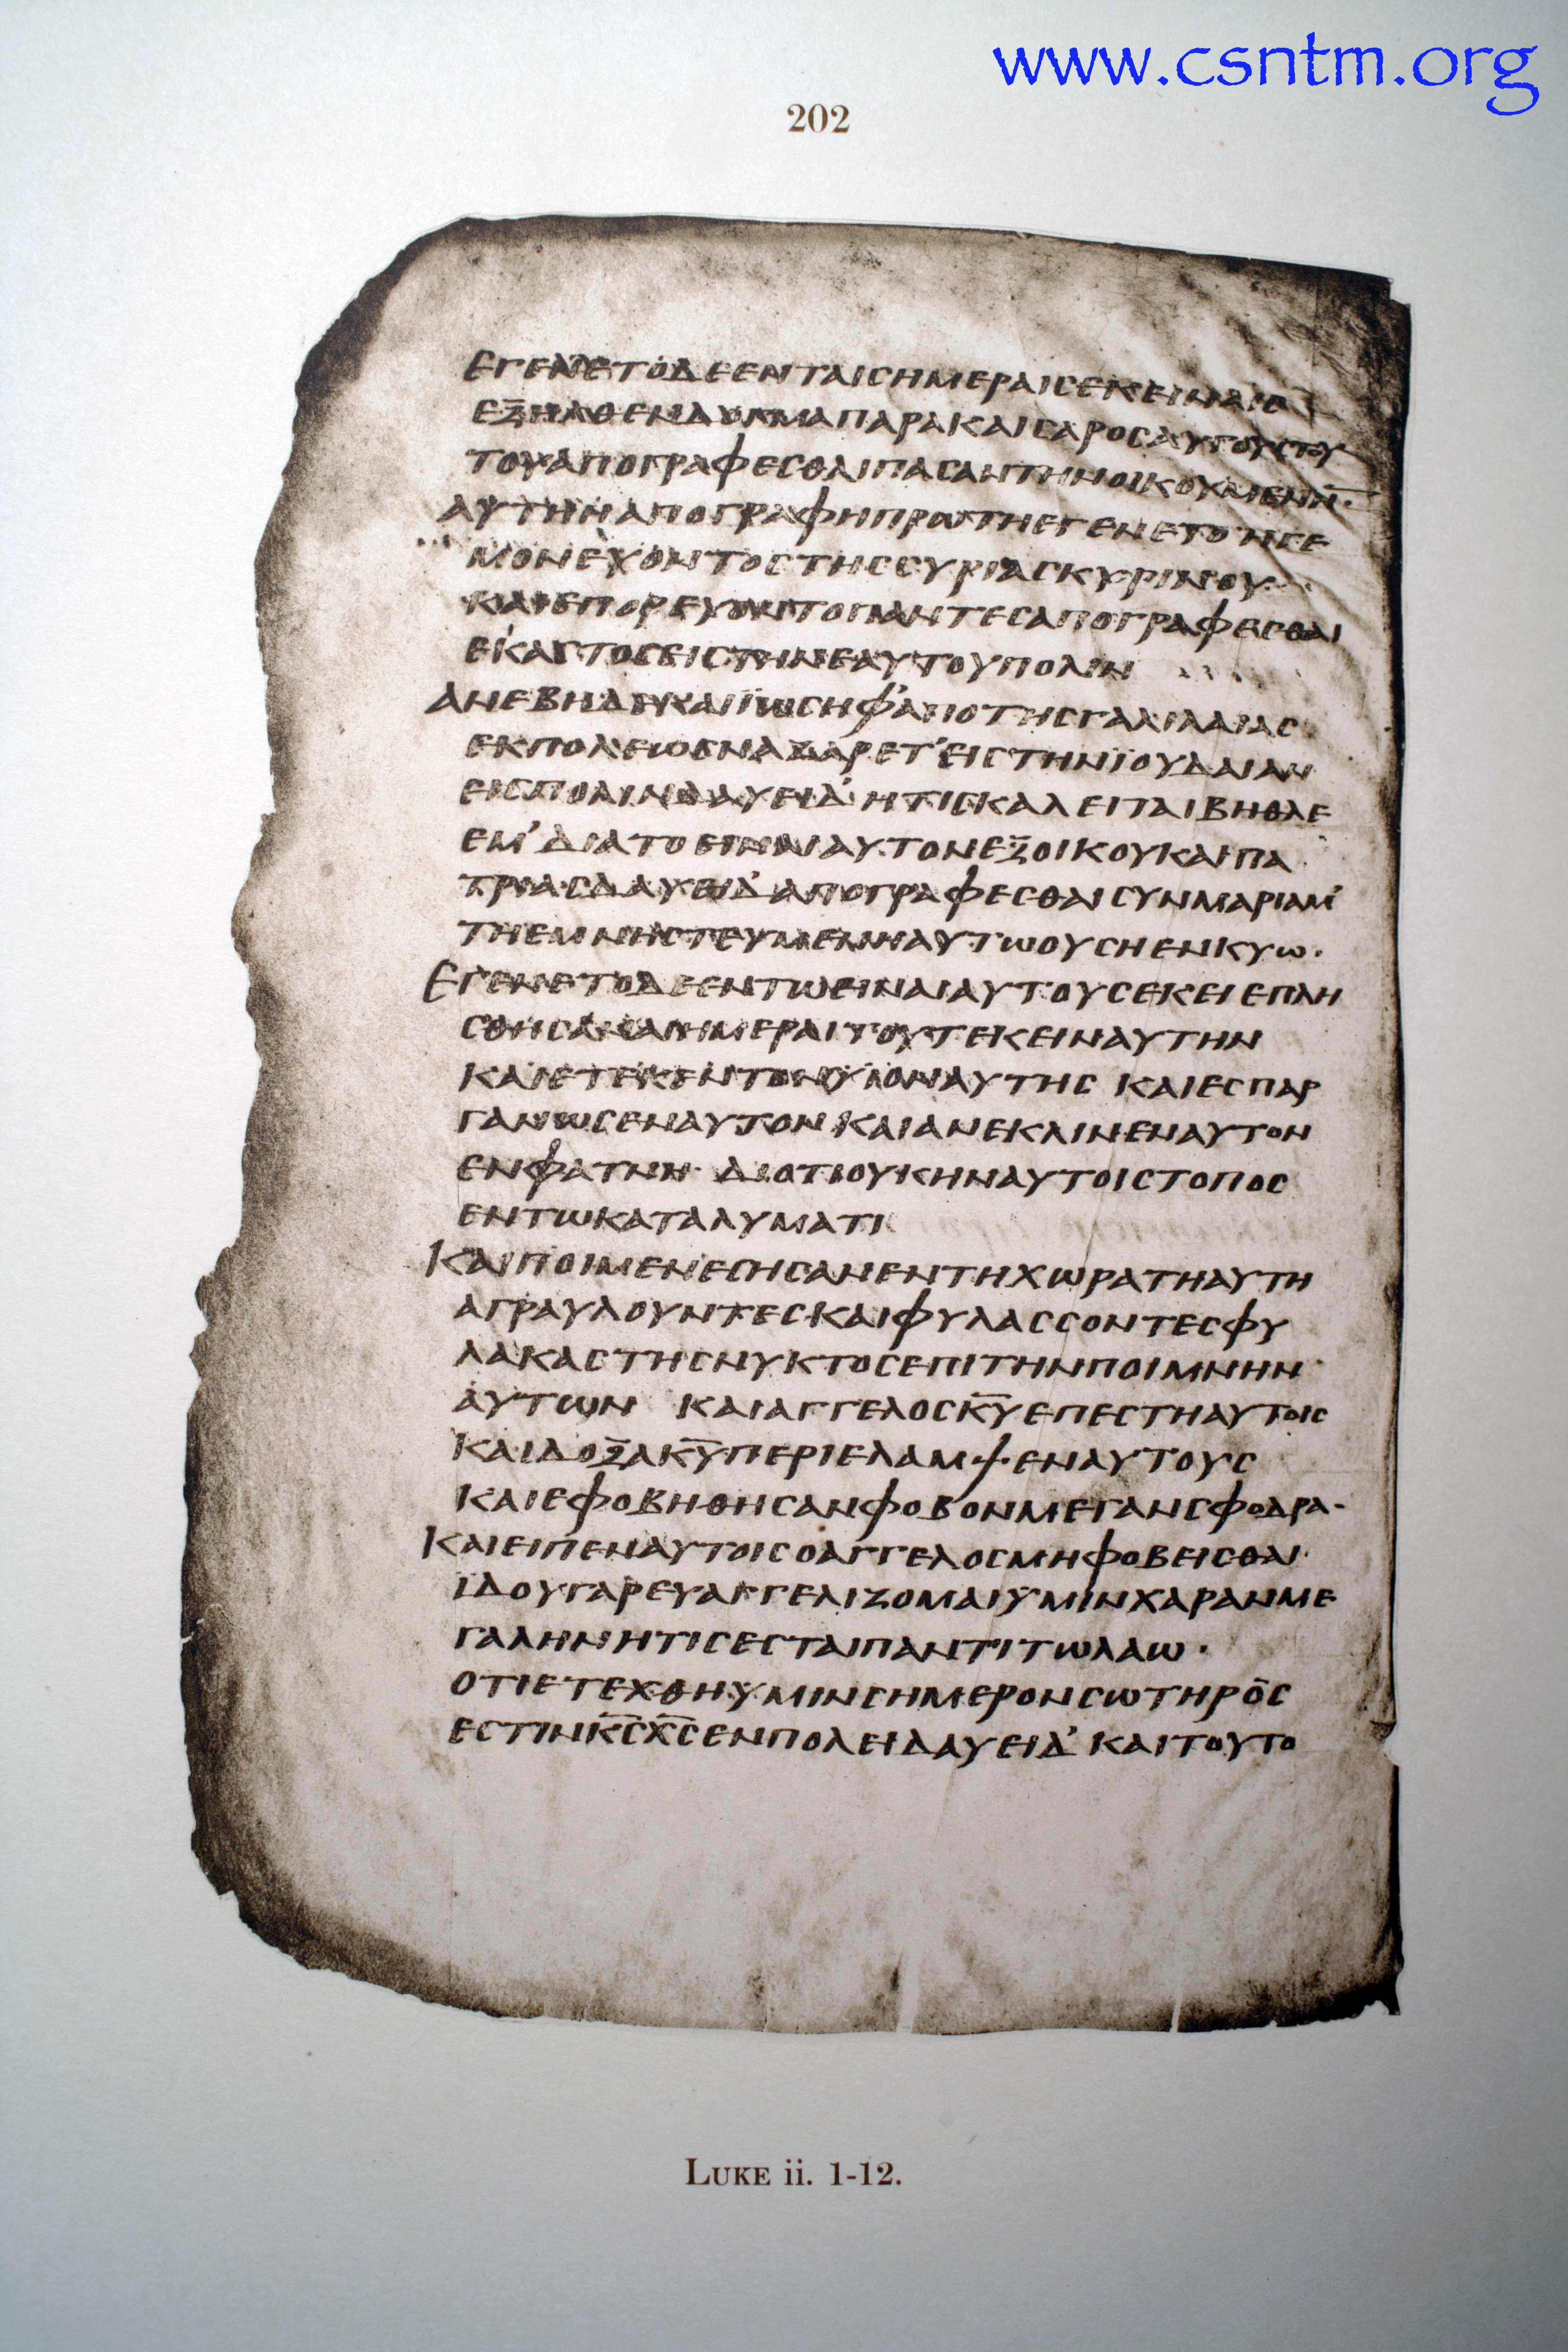 www.csntm.org
202
ΕΓΕΝΕΤΟΔΕΕΝΤΑΙСΗΜΕΡΑΙСΕΚΕΙΝΑΙС
ΕΞΗΛΘΕΝΔΟΓΜΑΠΑΡΑΚΑΙСΑΡΟСΑΥΓΟΥСΤΟΥ
ΤΟΥΑΠΟΓΡΑΦΕСΘΑΙΠΑСΑΝΤΗΝΟΙΚΟΥΜΕΝΗ̅·
ΑΥΤΗΗΑΠΟΓΡΑΦΗΠΡΩΤΗΕΓΕΝΕΤΟΗΓΕ
ΜΟΝΕΥΟΝΤΟСΤΗССΥΡΙΑСΚΥΡΙΝΟΥ
ΚΑΙΕΠΟΡΕΥΟΝΤΟΠΑΝΤΕСΑΠΟΓΡΑΦΕСΘΑΙ
ΕΚΑСΤΟСΕΙСΤΗΝΕΑΥΤΟΥΠΟΛΙΝ
ΑΝΕΒΗΔΕΚΑΙΪΩСΗΦ'ΑΠΟΤΗСΓΑΛΙΛΑΙΑС
ΕΚΠΟΛΕΩСΝΑΖΑΡΕΤ'ΕΙСΤΗΝΪΟΥΔΑΙΑΝ
ΕΙСΠΟΛΙΝΔΑΥΕΙΔ'ΗΤΙСΚΑΛΕΙΤΑΙΒΗΘΛΕ
ΕΜ'ΔΙΑΤΟΕΙΝΑΙΑΥΤΟΝΕΞΟΙΚΟΥΚΑΙΠΑ
ΤΡΙΑСΔΑΥΕΙΔ'ΑΠΟΓΡΑΦΕСΘΑΙСΥΝΜΑΡΙΑΜ'
ΤΗΕΜΝΗСΤΕΥΜΕΝΗΑΥΤΩΟΥСΗΕΝΚΥΩ·
ΕΓΕΝΕΤΟΔΕΕΝΤΩΕΙΝΑΙΑΥΤΟΥСΕΚΕΙΕΠΛΗ
СΘΗСΑΝΑΙΗΜΕΡΑΙΤΟΥΤΕΚΕΙΝΑΥΤΗΝ
ΚΑΙΕΤΕΚΕΝΤΟΝΥΙΟΝΑΥΤΗС ΚΑΙΕСΠΑΡ
ΓΑΝΩСΕΝΑΥΤΟΝΚΑΙΑΝΕΚΛΙΝΕΝΑΥΤΟΝ
ΕΝΦΑΤΝΗ· ΔΙΟΤΙΟΥΚΗΝΑΥΤΟΙСΤΟΠΟС
ΕΝΤΩΚΑΤΑΛΥΜΑΤΙ
ΚΑΙΠΟΙΜΕΝΕСΗСΑΝΕΝΤΗΧΩΡΑΤΗΑΥΤΗ
ΑΓΡΑΥΛΟΥΝΤΕСΚΑΙΦΥΛΑССΟΝΤΕСΦΥ
ΛΑΚΑСΤΗСΝΥΚΤΟСΕΠΙΤΗΝΠΟΙΜΝΗΝ
ΑΥΤΩΝ ΚΑΙΑΓΓΕΛΟСΚ̅Υ̅ΕΠΕСΤΗΑΥΤΟΙС
ΚΑΙΔΟΞΑΚ̅Υ̅ΠΕΡΙΕΛΑΜΨΕΝΑΥΤΟΥС
ΚΑΙΕΦΟΒΗΘΗСΑΝΦΟΒΟΝΜΕΓΑΝСΦΟΔΡΑ·
ΚΑΙΕΙΠΕΝΑΥΤΟΙСΟΑΓΓΕΛΟСΜΗΦΟΒΕΙСΘΑΙ·
ΪΔΟΥΓΑΡΕΥΑΓΓΕΛΙΖΟΜΑΙΫΜΙΝΧΑΡΑΝΜΕ
ΓΑΛΗΝΗΤΙСΕСΤΑΙΠΑΝΤΙΤΩΛΑΩ·
ΟΤΙΕΤΕΧΘΗΥΜΙΝСΗΜΕΡΟΝСΩΤΗΡΟС
ΕСΤΙΝΚ̅С̅Χ̅С̅ΕΝΠΟΛΕΙΔΑΥΕΙΔ'ΚΑΙΤΟΥΤΟ
LUKE ii. 1-12.